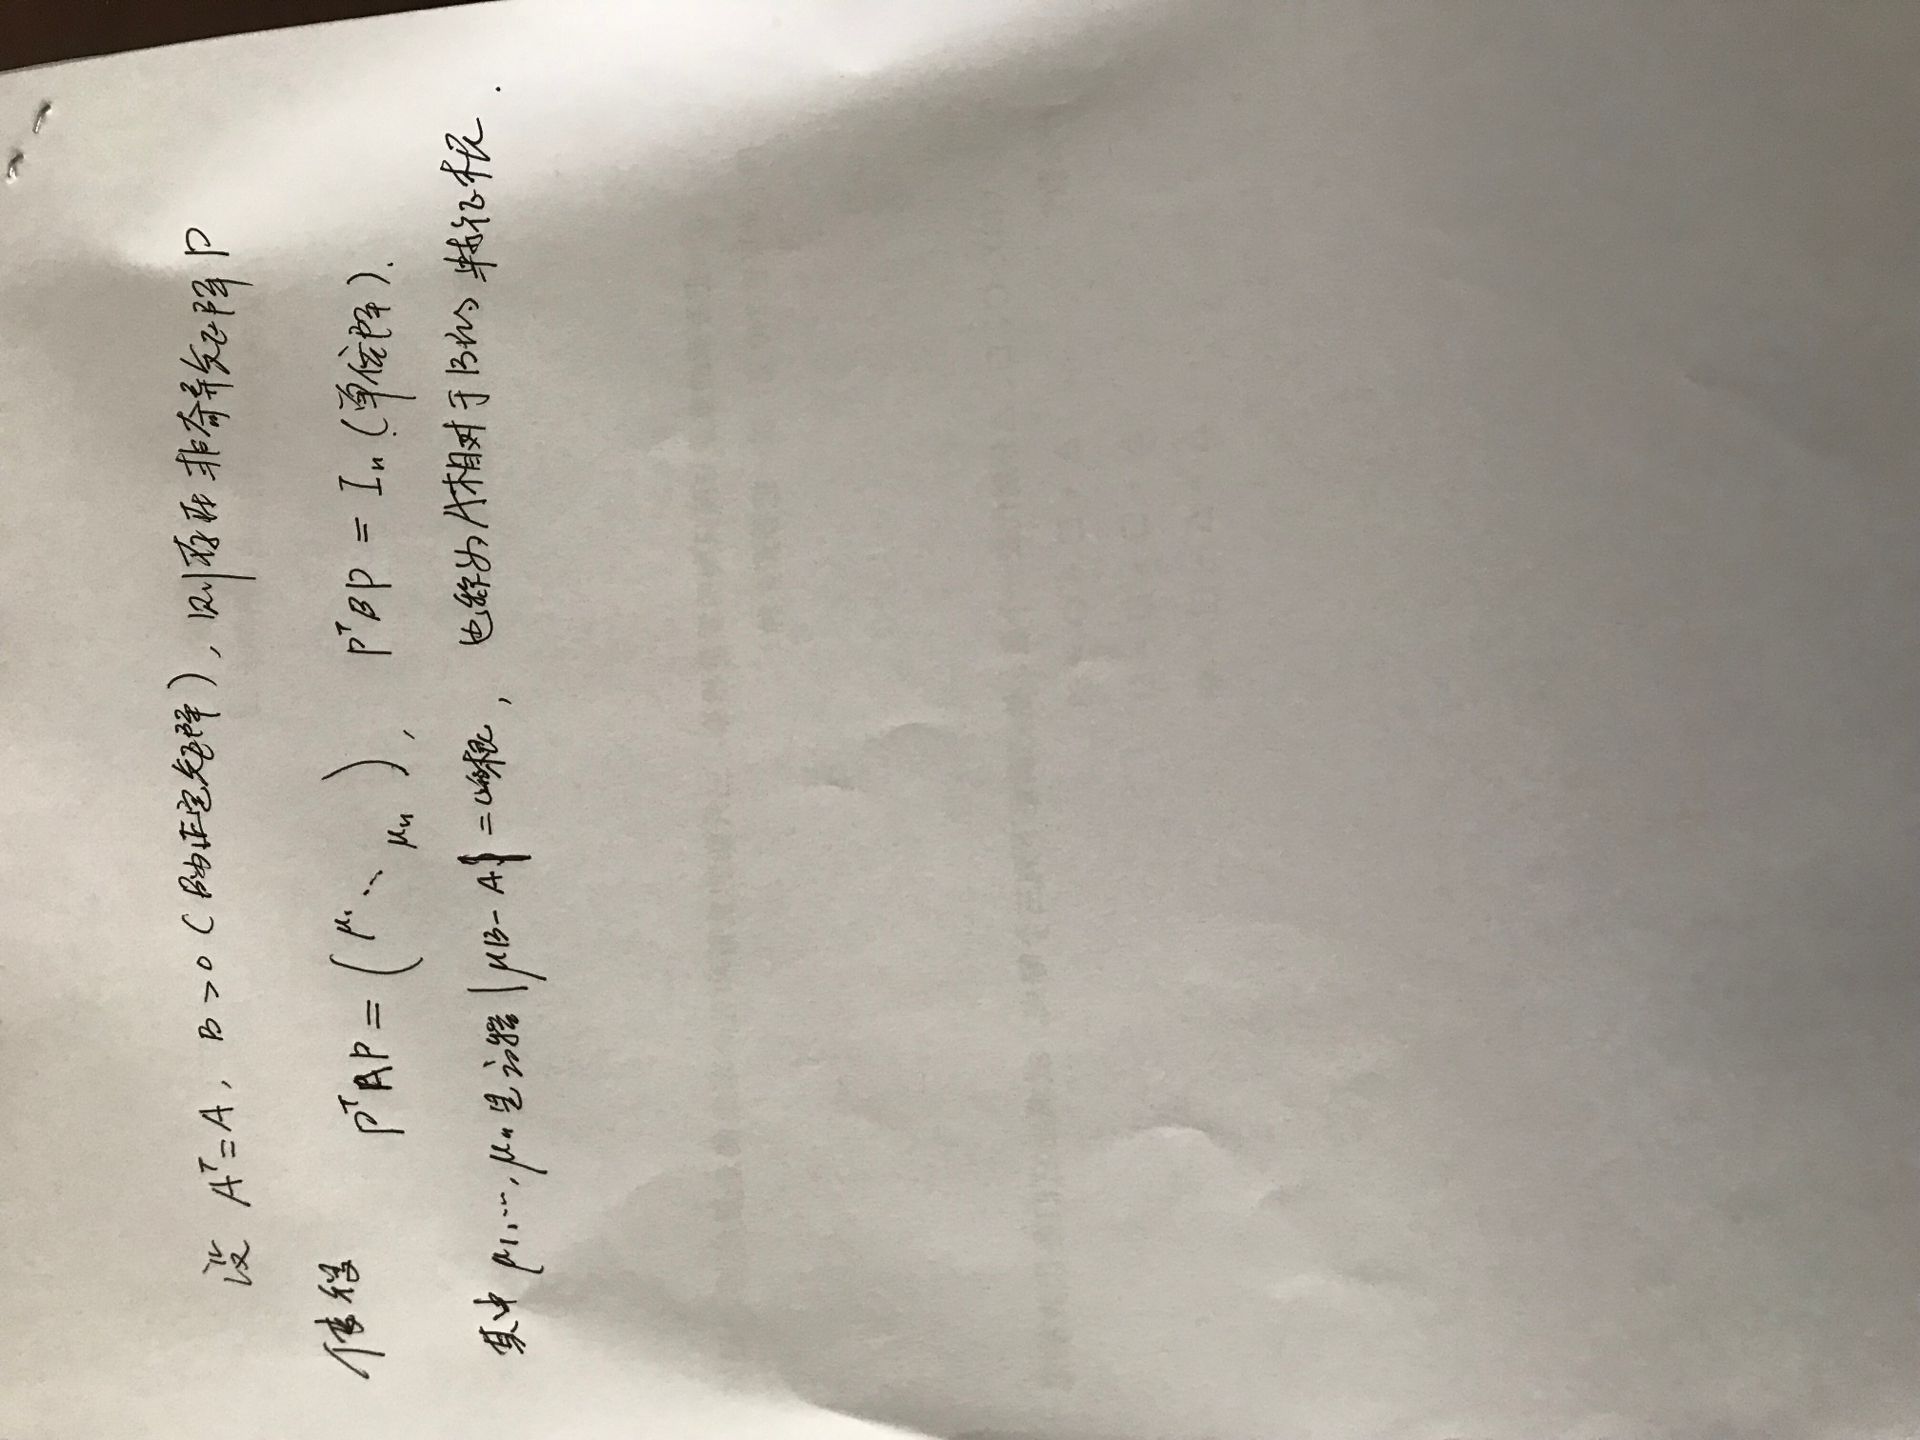 设 Aᵀ=A, B>0 (B为正定矩阵), 则存在非奇异矩阵 P
使得 PᵀAP = (μ₁ ⋱ μₙ), PᵀBP = Iₙ (单位阵).
其中 μ₁,…,μₙ 是方程 |μB-A|=0的根, 也称为A相对于B的特征根.